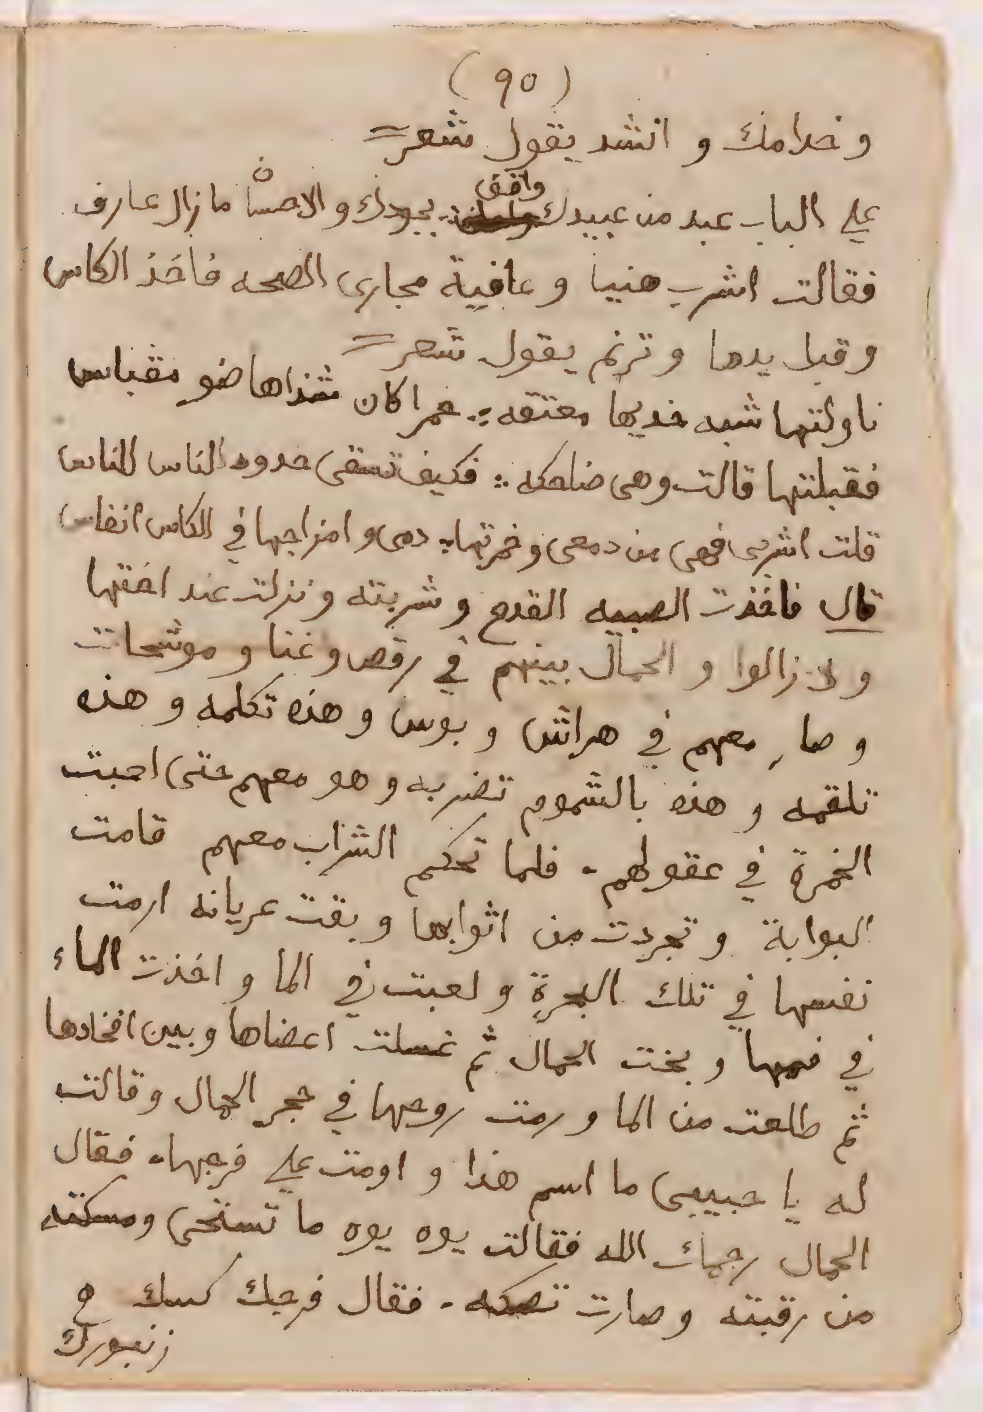 (٩٥)
و خدامك و انشد يقول شعر
علي الباب عبد من عبيدك واقف بجودك و الاحسان ما زال عارف
فقالت اشرب هنيا و عافية مجارى الصحه فاخذ الكاس
و قبل يدها و ترنم يقول شعر
ناولتها شبه خديها معتقه ∴ عمرا كان شذاها ضو مقباس
فقبلتها قالت وهى ضاحكه ∴ فكيف تسقى خدود الناس للناس
قلت اشربى فهى من دمعى و خمرتها ∴ دمى و امزاجها في الكاس انفاس
قال فاخذت الصبيه القدح و شربته و نزلت عند اختها
و لا زالوا و الحمال بينهم في رقص و غنا و موشحات
و صار معهم في هراش و بوس و هذه تكلمه و هذه
تلقمه و هذه بالشموم تضربه و هو معهم حتى لعبت
الخمرة في عقولهم . فلما تحكم الشراب معهم قامت
البوابة و تجردت من اثوابها و بقت عريانه ارمت
نفسها في تلك البحرة و لعبت في الما و اخذت الماء
في فمها و بخت الحمال ثم غسلت اعضاها و بين افخادها
ثم طلعت من الما و رمت روحها في حجر الحمال و قالت
له يا حبيبى ما اسم هذا و اومت علي فرجها . فقال
الحمال رحمك الله فقالت يوه يوه ما تستحى و مسكته
من رقبته و صارت تصكه . فقال فرجك كسك
زنبورك